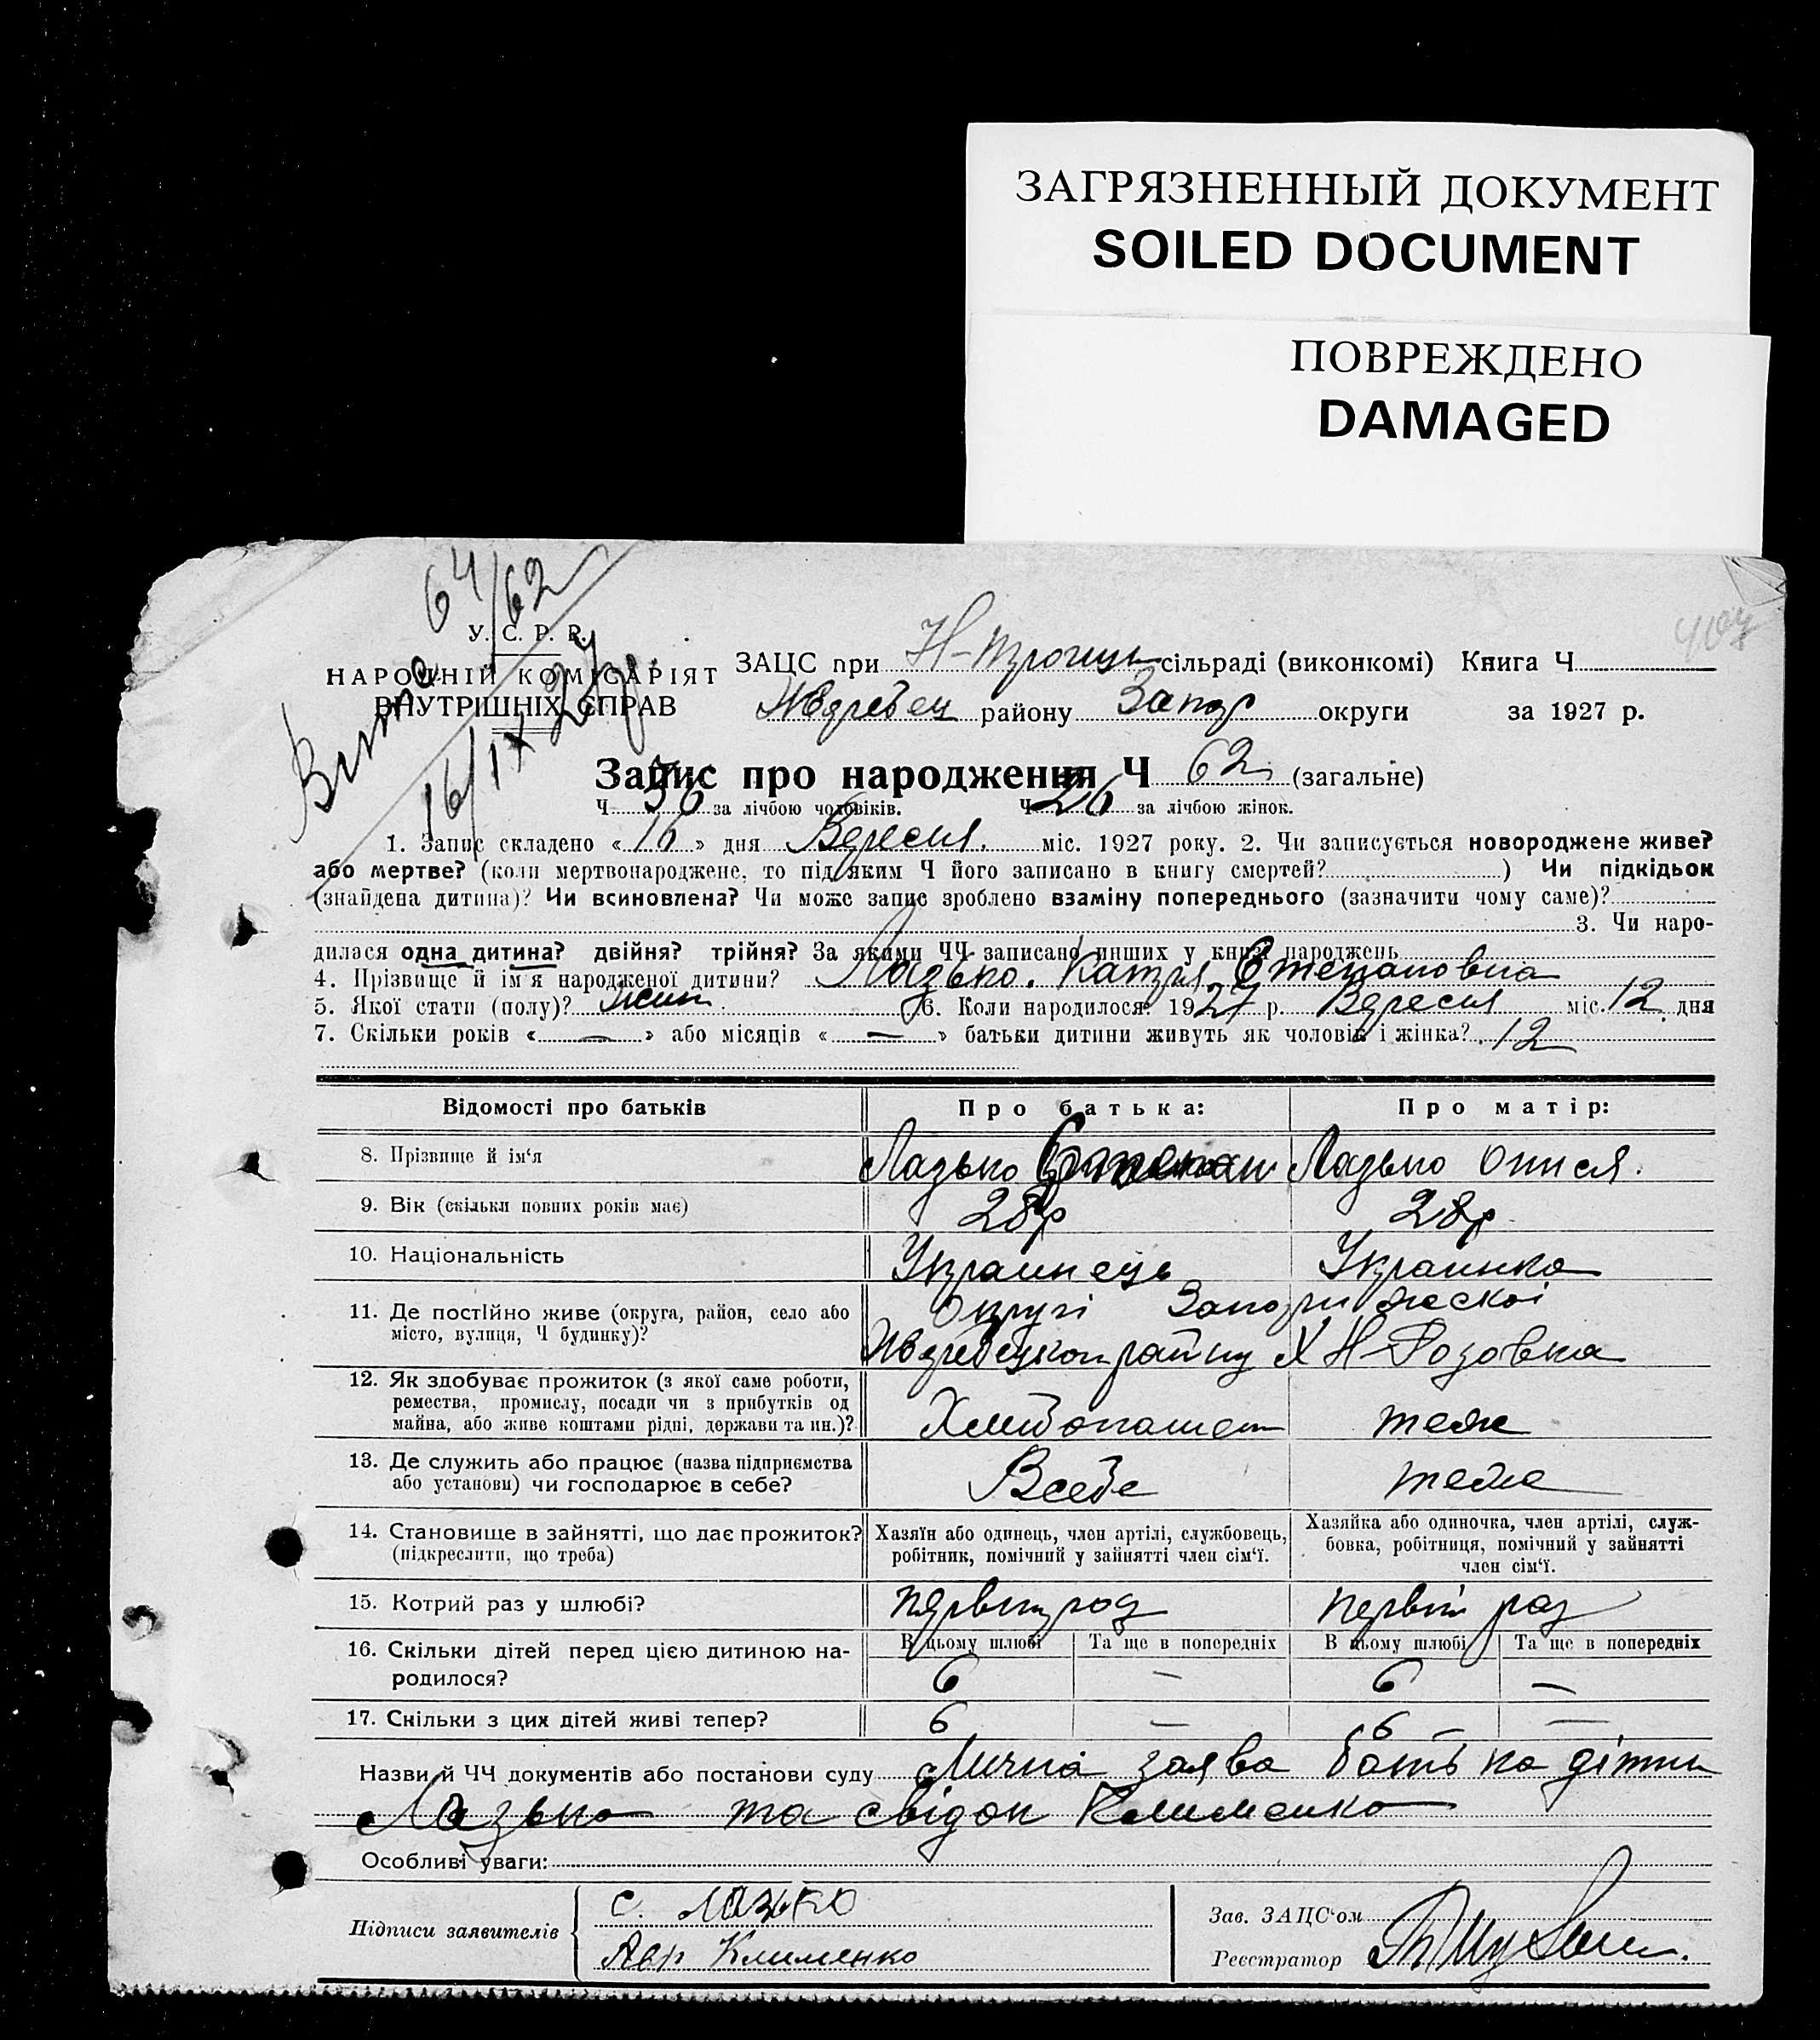 ЗАГРЯЗНЕННЫЙ ДОКУМЕНТ
SOILED DOCUMENT
ПОВРЕЖДЕНО
DAMAGED
64/62
16/IX 27 р.
У. С. Р. Р.
НАРОДНІЙ КОМІСАРІЯТ
ВНУТРІШНІХ СПРАВ
ЗАЦС при сільраді (виконкомі) Книга Ч
району Запор округи за 1927 р.
Запис про народження Ч 62 (загальне)
Ч 36 за лічбою чоловіків. Ч 26 за лічбою жінок.
1. Запис складено « 16 » дня Вересня. міс. 1927 року. 2. Чи записується новороджене живе?
або мертве? (коли мертвонароджене, то під яким Ч його записано в книгу смертей? ) Чи підкідьок
(знайдена дитина)? Чи всиновлена? Чи може запис зроблено взаміну попереднього (зазначити чому саме)?
3. Чи наро-
дилася одна дитина? двійня? трійня? За якими ЧЧ записано инших у книзі народжень
4. Прізвище й ім'я народженої дитини? Лазько. Катря Степановна
5. Якої стати (полу)? Жин. 6. Коли народилося? 1927 р. Вересня міс. 12 дня
7. Скільки років « — » або місяців « — » батьки дитини живуть як чоловік і жінка? 12
Відомості про батьків Про батька: Про матір:
8. Прізвище й ім'я Лазько Степан Лазько
9. Вік (скільки повних років має) 28 р 28 р.
10. Національність Украинець Украинка
11. Де постійно живе (округа, район, село або Округі
місто, вулиця, Ч будинку)? Х Н-Розовка
12. Як здобуває прожиток (з якої саме роботи,
ремества, промислу, посади чи з прибутків од
майна, або живе коштами рідні, держави та ин.)? теж
13. Де служить або працює (назва підприємства
або установи) чи господарює в себе? Всебе теж
14. Становище в зайнятті, що дає прожиток? Хазяїн або одинець, член артілі, службовець, Хазяйка або одиночка, член артілі, служ-
(підкреслити, що треба) робітник, помічний у зайнятті член сім'ї. бовка, робітниця, помічний у зайнятті
член сім'ї.
15. Котрий раз у шлюбі? первий раз
16. Скільки дітей перед цією дитиною на- В цьому шлюбі Та ще в попередніх В цьому шлюбі Та ще в попередніх
родилося? 6 — 6 —
17. Скільки з цих дітей живі тепер? 6 — 6 —
Назви й ЧЧ документів або постанови суду Лична заява батька дітини
Лазько та свідок Клименко
Особливі уваги:
Підписи заявителів С. Лазько
Авр Клименко
Зав. ЗАЦС'ом
Реєстратор